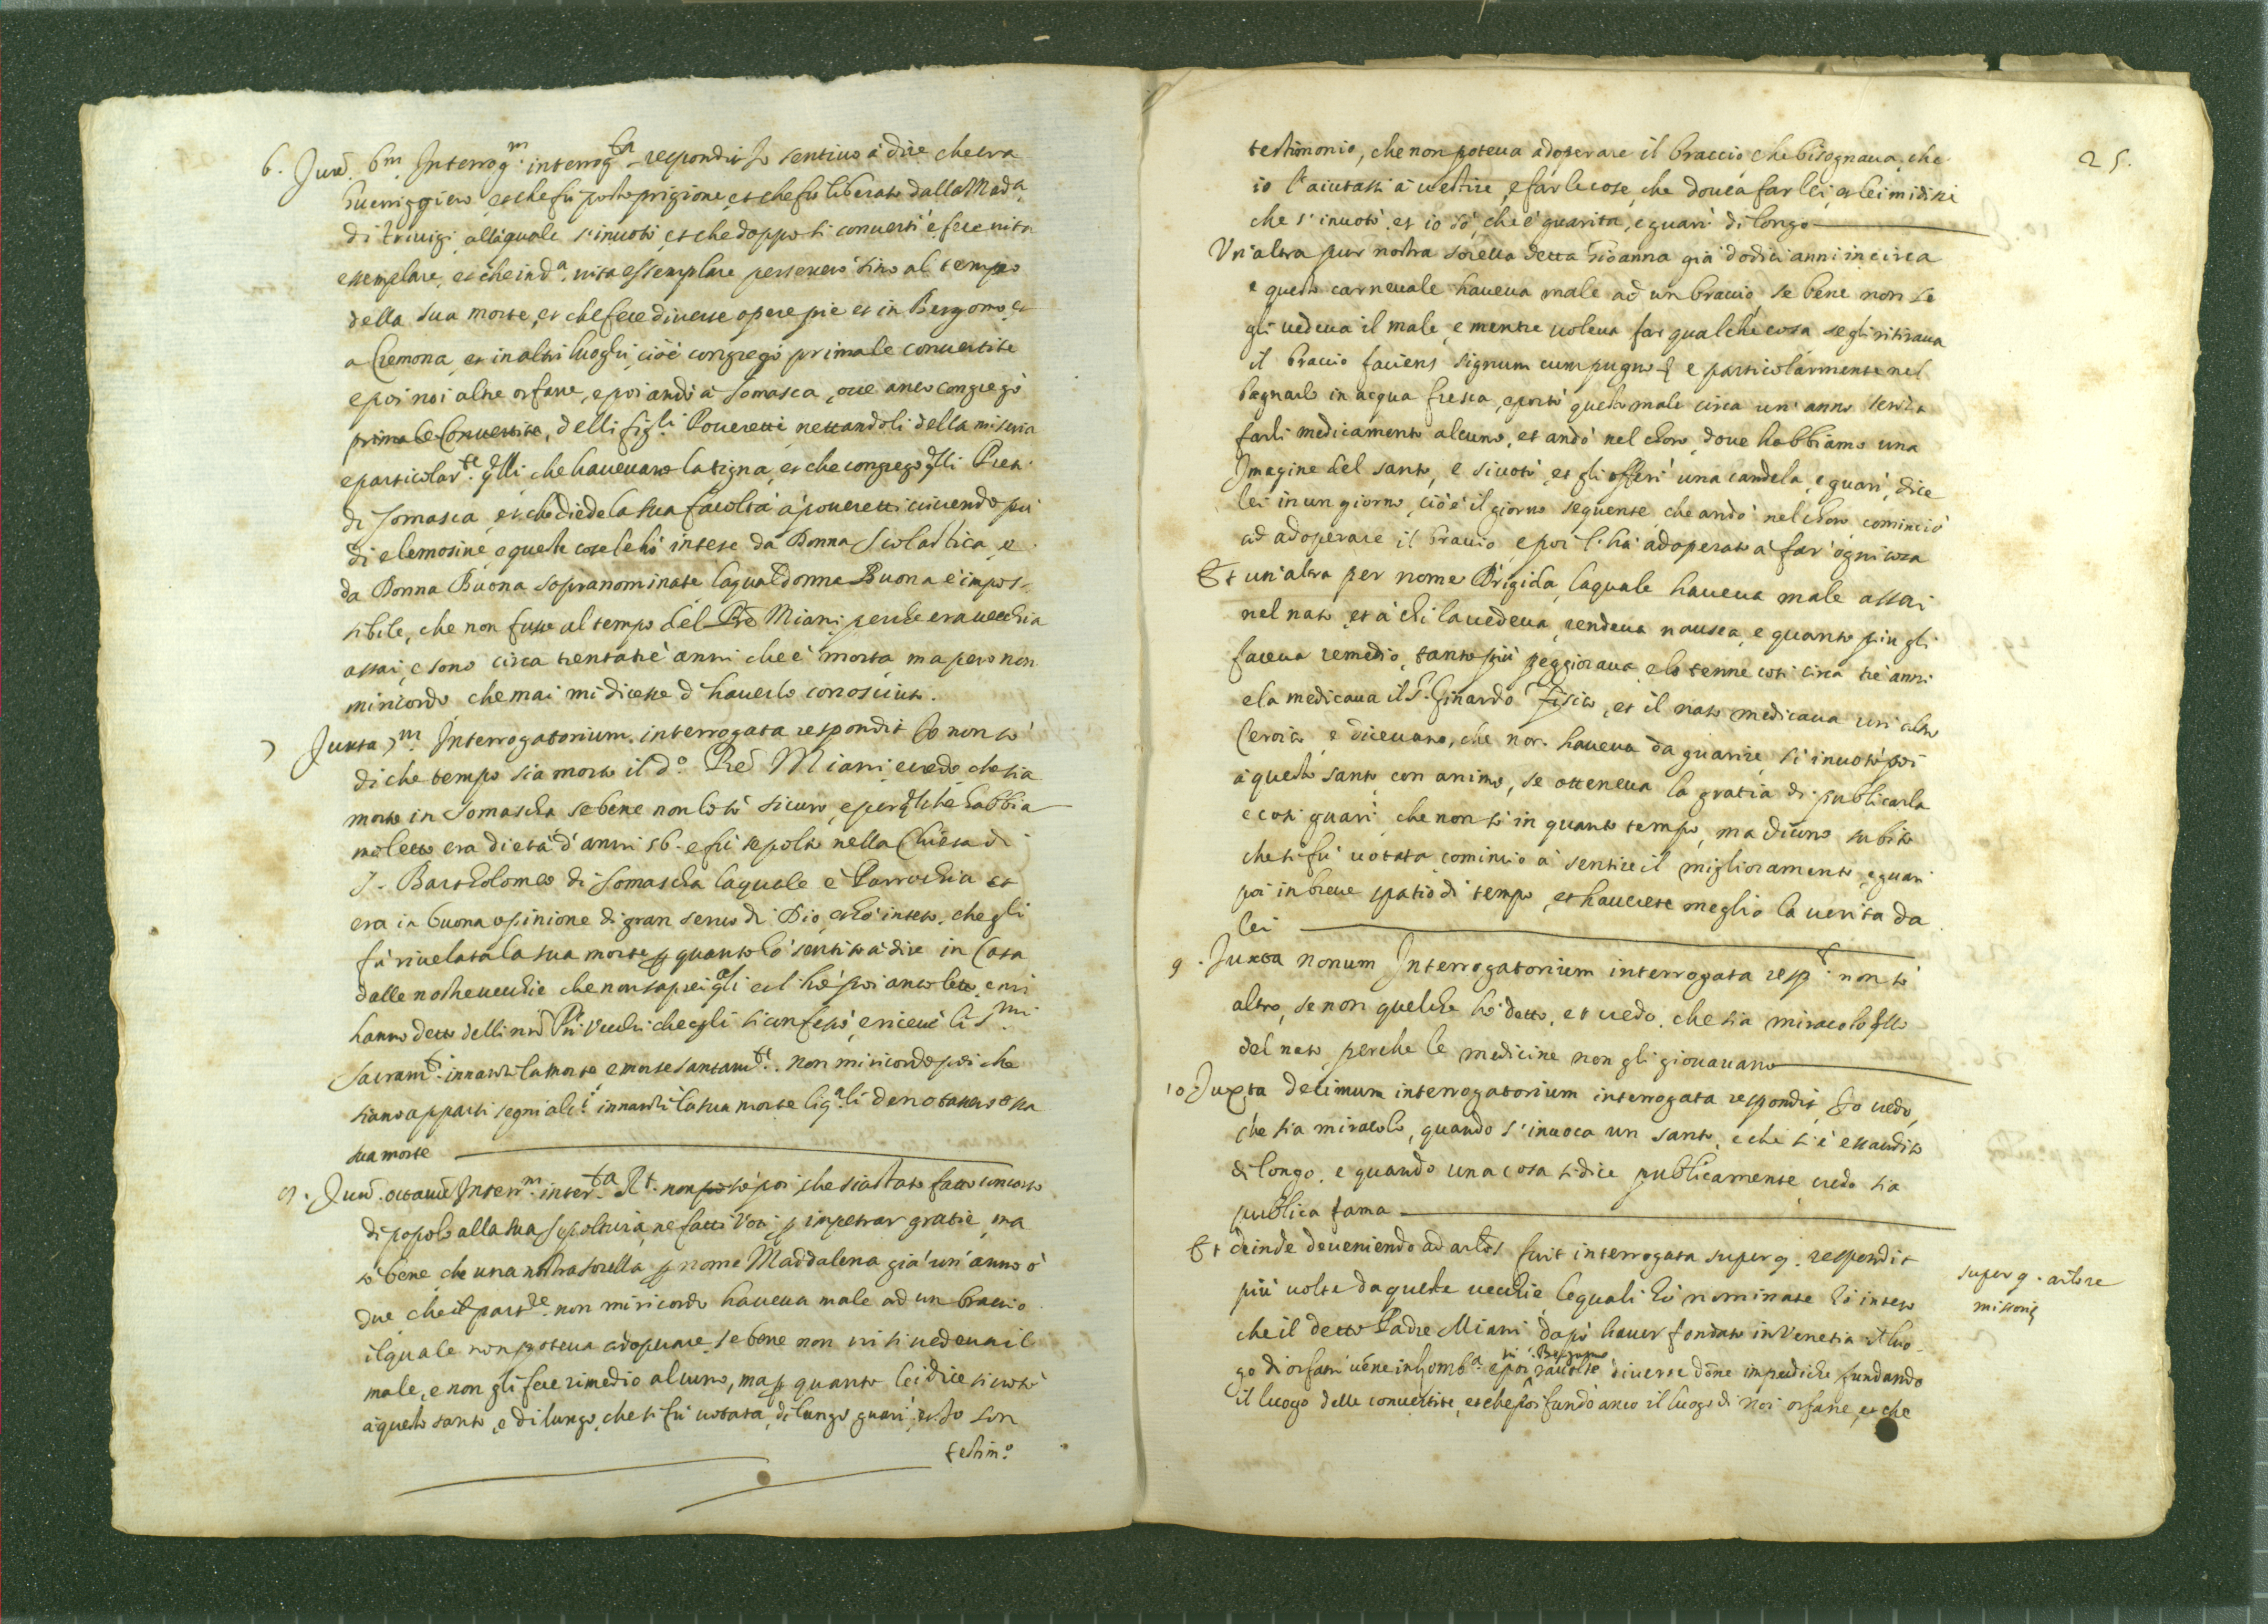 6. Juxª. 6m. Interrogm. interrogta respondit Io sentivo à dire che era
Guerriggiero, et che fù posto prigione, et che fù liberato dalla Mada.
di Trivigi alla quale s'invotò et che doppo si convertì e fece vita
essemplare, et che in da. vita essemplare perseverò sino al tempo
della sua morte, et che fece diverse opere pie et in Bergomo, et
a Cremona, et in altri luoghi, cioè congregò prima le convertite
e poi noi altre orfane, e poi andò à Somasca, ove anco congregò
prima le Convertite, delli figli Poveretti nettandoli della miseria
e particolarte. qlli che havevano la tigna, et che congregò qlli Preti
di Somasca, et che diede la sua facoltà à poveretti vivendo poi
di elemosine, e queste cose le hò intese da Donna Scolastica, e
da Donna Buona sopranominate, la qual donna Buona è impos-
sibile, che non fusse al tempo del Pre Miani, perche era vecchia
assai, e sono circa trentatrè anni che è morta, ma però non
mi ricordo che mai mi dicesse d'haverlo conosciuto.
7 Juxta 7m. Interrogatorium interrogata respondit Io non sò
di che tempo sia morto il do. Pre Miani, credo che sia
morto in Somascha se bene non lo sò sicuro, e per qllo che habbia
mò letto era di età d'anni 56. e fù sepolto nella Chiesa di
S. Bartholomeo di Somascha la quale è Parrochia et
era in buona opinione di gran servo di Dio, et hò inteso, che gli
fù rivelata la sua morte p quanto hò sentito à dire in Casa
dalle nostre vecchie che non saprei qli et l'hò poi anco letto, e mi
hanno detto delli nri Pri Vecchi che egli si confessò, e ricevè li Smi.
Sacramti. innanzi la morte e morse santamte. non mi ricordo poi che
siano apparsi segni alci. innanzi la sua morte li qali denotassero essa
sua morte
8. Juxª. octavum Interrm. interta. Rt. non sò poi che sia stato fatto concorso
di popolo alla sua sepoltura, ne fatti Voti p impetrar gratie, ma
sò bene che una nostra sorella p nome Maddalena già un'anno ò
due che il partre. non mi ricordo haveva male ad un braccio
il quale non poteva adoperare, se bene non vi si vedeva il
male, e non gli fece rimedio alcuno, ma p quanto lei dice si votò
à questo santo, e di lungo, che si fù votata, di lungo guarì, et Io son
testimo.
25.
testimonio, che non poteva adoperare il braccio che bisognava, che
io l'aiutassi à vestire, e far le cose, che doveva far lei, et lei mi disse
che s'invotò, et io sò, che è guarita, e guarì di longo
Un'altra pur nostra sorella detta Gioanna già dodici anni in circa
e questo carnevale haveva male ad un braccio, se bene non se
gli vedeva il male, e mentre voleva far qualche cosa se gli ritirava
il braccio faciens signum cum pugno, e particolarmente nel
bagnarlo in acqua fresca, e portò questo male circa un'anno senza
farli medicamento alcuno, et andò nel choro, dove habbiamo una
Imagine del santo, e si votò, et gli offerì una candela, e guarì, dice
lei in un giorno, cioè il giorno seguente, che andò nel choro, cominciò
ad adoperare il braccio, e poi l'hà adoperato à far ogni cosa
Et un'altra per nome Brigida, la quale haveva male assai
nel naso, et à chi la vedeva, rendeva nausea, e quanto più gli
faceva remedio, tanto più peggiorava, e lo tenne così circa trè anni
e la medicava il Sr. Ginardo fisico, et il naso medicava un altro
Ceroico, e dicevano, che non haveva da guarire, si invotò poi
à questo santo con animo, se otteneva la gratia di publicarla
e così guarì, che non sò in quanto tempo, ma dicono subito
che si fù votata cominciò à sentire il miglioramento, e guarì
poi in breve spatio di tempo, et haverete meglio la verità da
lei
9. Juxta nonum Interrogatorium interrogata respt. non sò
altro, se non quelche hò detto, et credo, che sia miracolo qllo
del naso perche le medicine non gli giovavano
10. Juxta decimum interrogatorium interrogata respondit, Io credo,
che sia miracolo, quando s'invoca un santo, e che si è essaudito
di longo, e quando una cosa si dice publicamente, credo sia
publica fama
Et deinde deveniendo ad arlos fuit interrogata super 9. respondit
super 9. arlo re
missoriæ
più volte da queste vecchie, le quali hò nominate hò inteso
che il detto Padre Miani dopò haver fondato in Venetia il luo-
go di orfani vene in Lomba. e poi in Bergomo raccolse diverse done impudiche fundando
il luogo delle convertite, et che poi fundò anco il luogo di noi orfane, et che